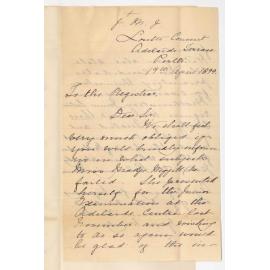 J M J
Loreto Convent
Adelaide Terrace
Perth
19th April 1890.
To the Registrar
Dear Sir
We shall feel
very much obliged if
you will kindly inform
us in what subject
Miss Gladys
failed She presented
herself for the Junior
Examination at the
Adelaide Centre last
November and wishing
to as again would
be glad of the in-